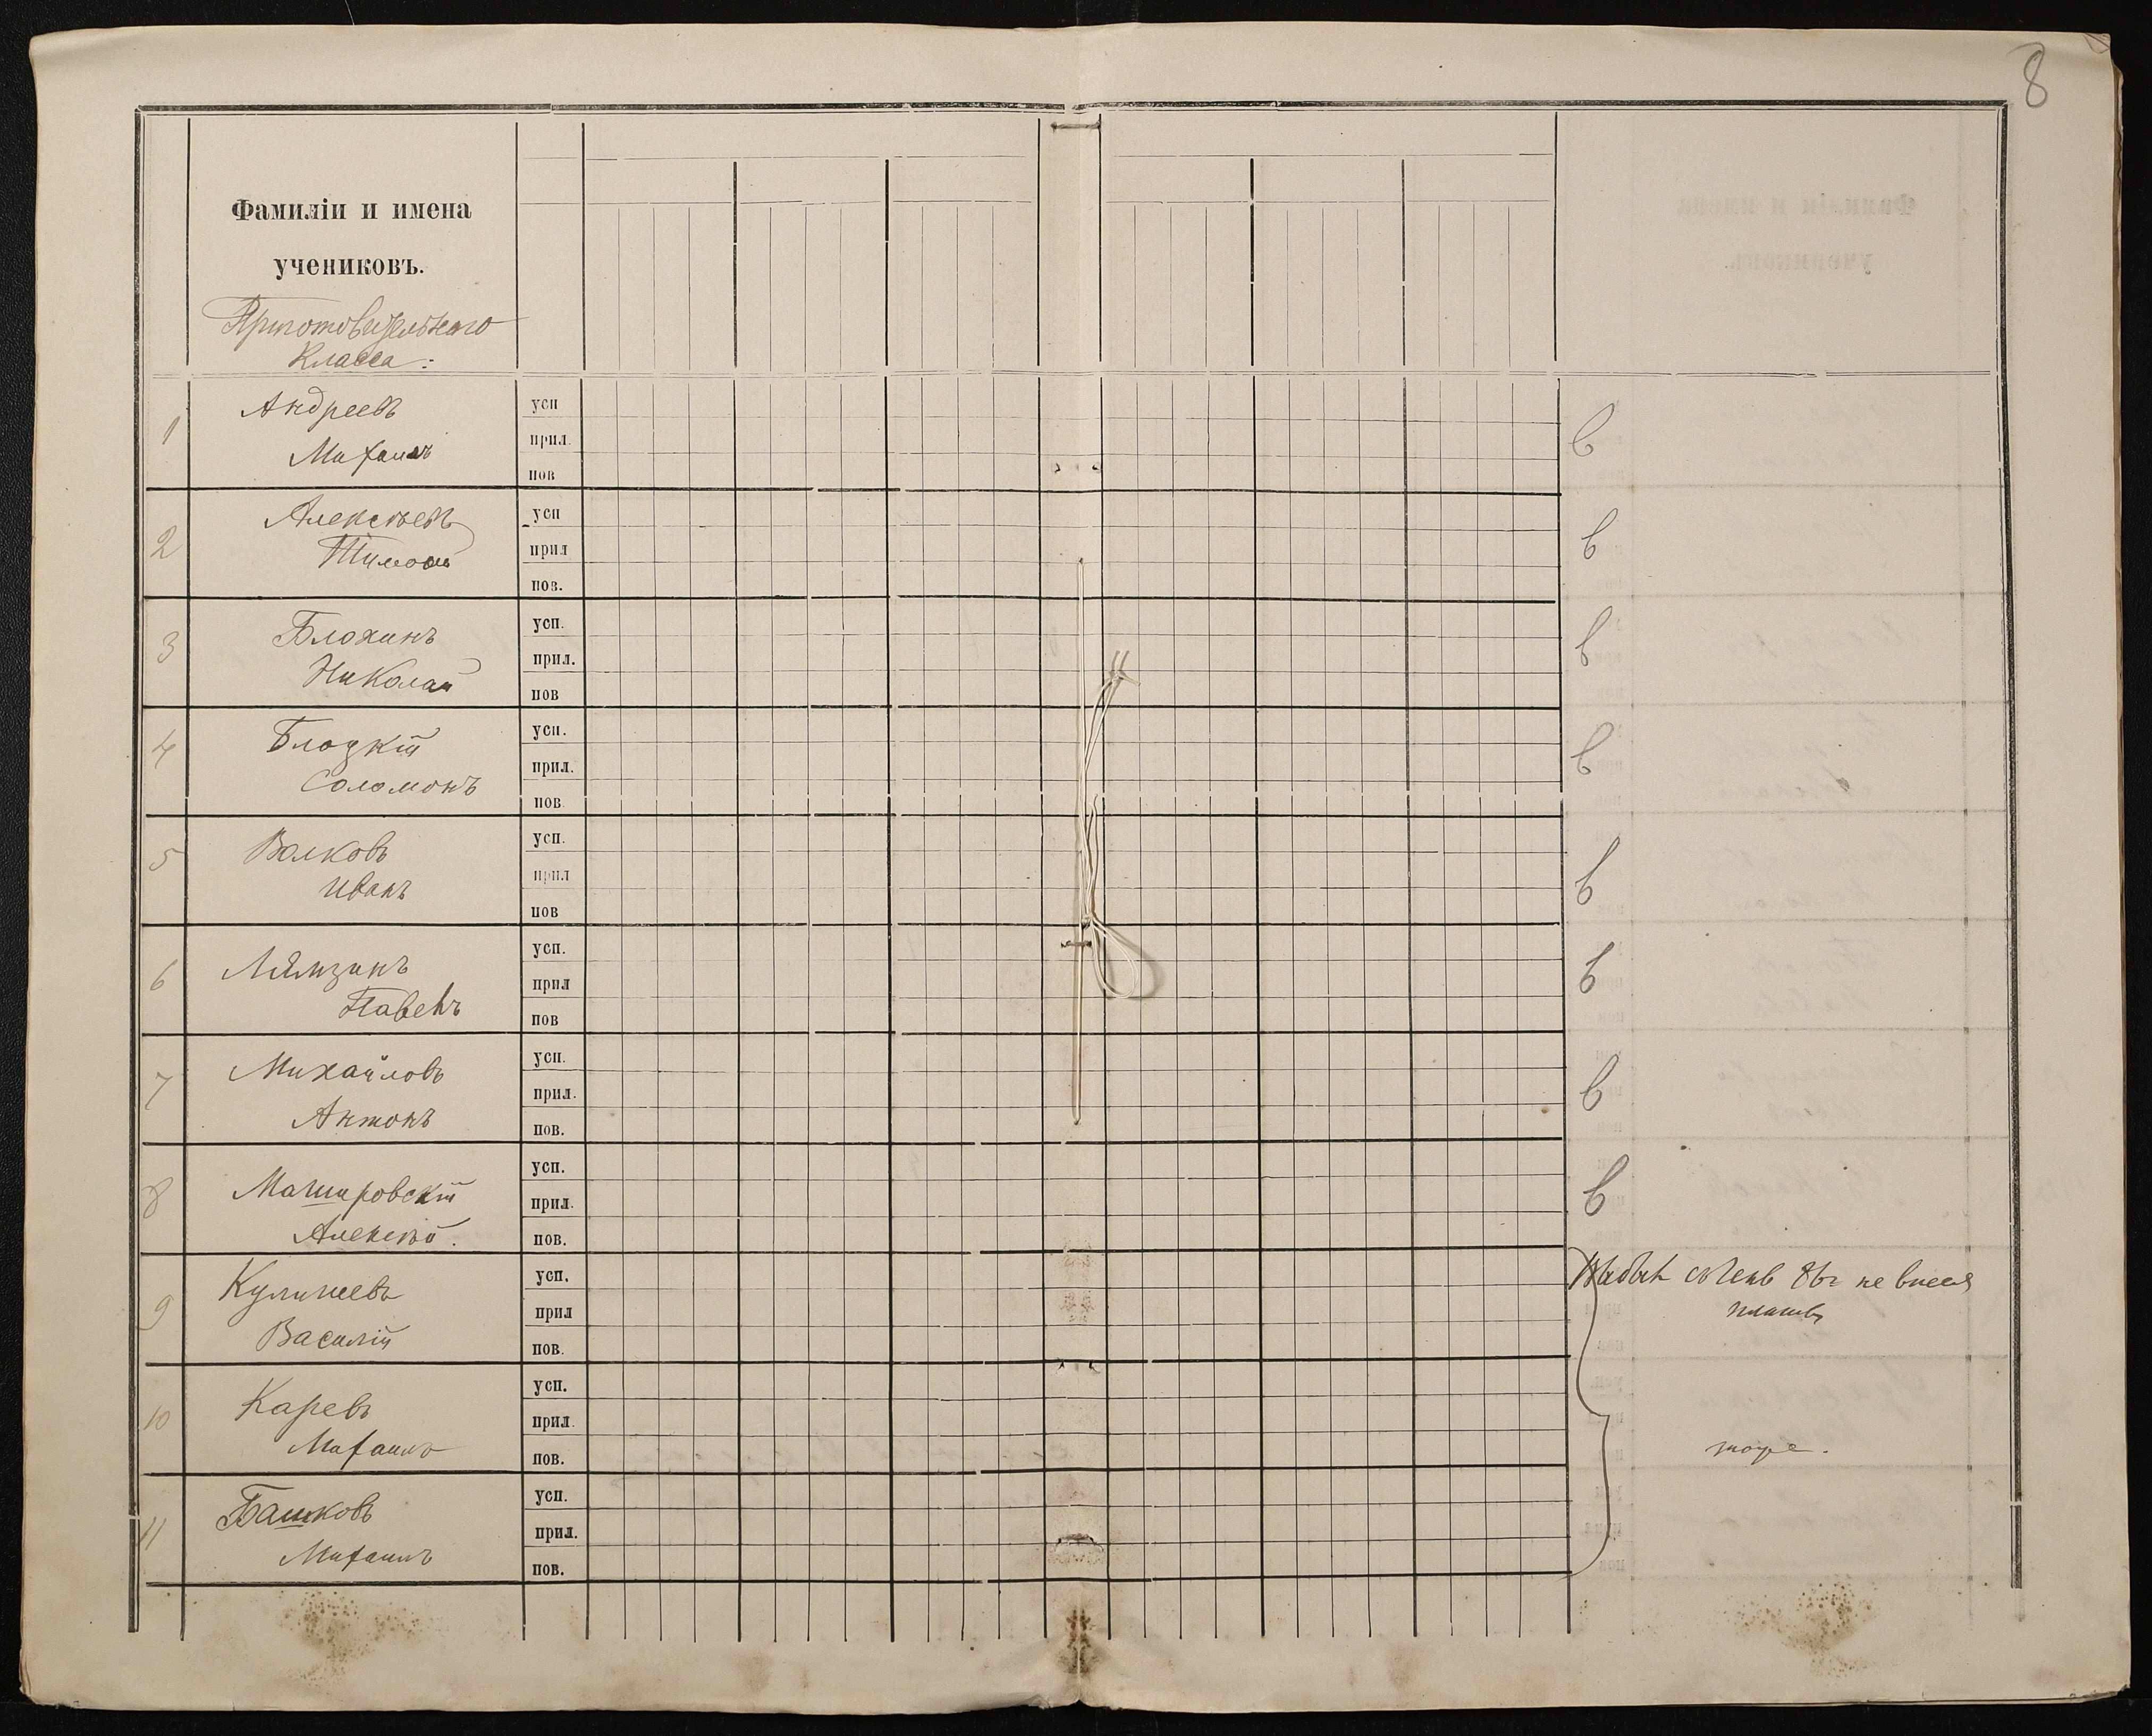 8
Фамиліи и имена
учениковъ.
Приготовительнаго
Класса:
1
Андреевъ
Михаилъ
усп
прил.
пов
в
2
Алексѣевъ
Тимоѳей
усп
прил
пов.
в
3
Блохинъ
Николай
усп.
прил.
пов
в
4
Блоцкій
Соломонъ
усп.
прил.
пов
в
5
Волковъ
Иванъ
усп.
прил
пов
в
6
Лямзинъ
Павелъ
усп.
прил
пов
в
7
Михайловъ
Антонъ
усп.
прил.
пов.
в
8
Машировскій
Алексѣй.
усп.
прил.
пов.
в
9
Куличевъ
Василій
усп.
прил
пов.
не внеся
платы
10
Каревъ
Михаилъ
усп.
прил.
пов.
тоже.
11
Башковъ
Михаилъ
усп.
прил.
пов.